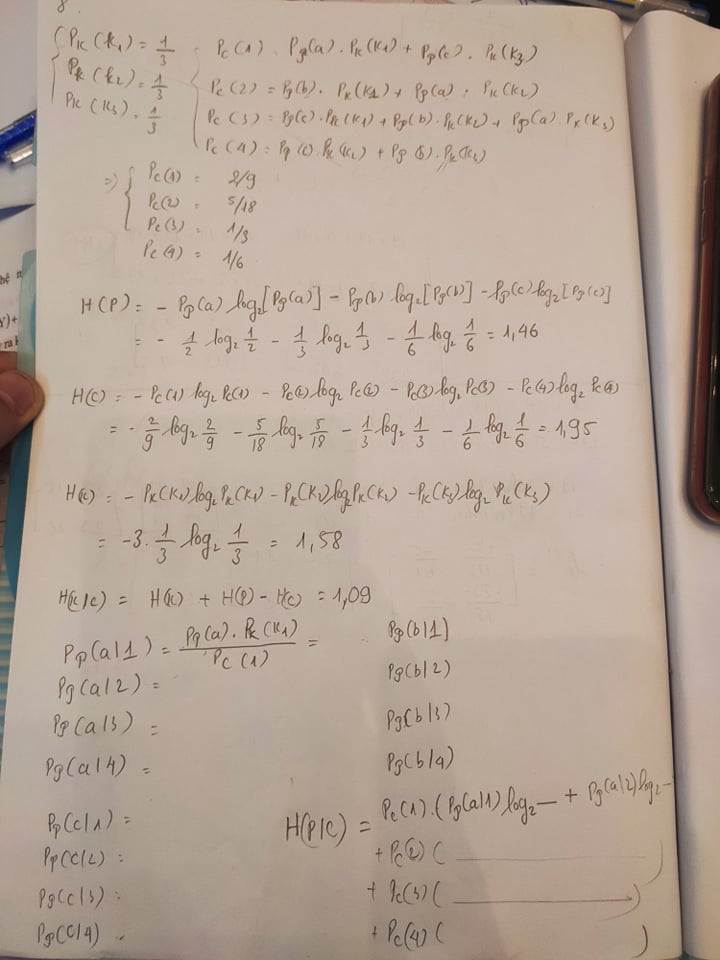 8.
P_K(k_1) = 1/3
P_K(k_2) = 1/3
P_K(k_3) = 1/3
P_C(1) = P_P(a) . P_K(K_1) + P_P(c) . P_K(K_3)
P_C(2) = P_P(b) . P_K(K_1) + P_P(a) . P_K(K_2)
P_C(3) = P_P(c) . P_K(K_1) + P_P(b) . P_K(K_2) + P_P(a) . P_K(K_3)
P_C(4) = P_P(c) . P_K(K_2) + P_P(b) . P_K(K_3)
=> P_C(1) = 2/9
P_C(2) = 5/18
P_C(3) = 1/3
P_C(4) = 1/6
H(P) = - P_P(a) log_2[P_P(a)] - P_P(b) log_2[P_P(b)] - P_P(c) log_2[P_P(c)]
= - 1/2 log_2 1/2 - 1/3 log_2 1/3 - 1/6 log_2 1/6 = 1,46
H(C) = - P_C(1) log_2 P_C(1) - P_C(2) log_2 P_C(2) - P_C(3) log_2 P_C(3) - P_C(4) log_2 P_C(4)
= - 2/9 log_2 2/9 - 5/18 log_2 5/18 - 1/3 log_2 1/3 - 1/6 log_2 1/6 = 1,95
H(K) = - P_K(K_1) log_2 P_K(K_1) - P_K(K_2) log_2 P_K(K_2) - P_K(K_3) log_2 P_K(K_3)
= -3. 1/3 log_2 1/3 = 1,58
H(K/C) = H(K) + H(P) - H(C) = 1,09
P_P(a|1) = P_P(a) . P_K(K_1) / P_C(1) =
P_P(a|2) =
P_P(a|3) =
P_P(a|4) =
P_P(b|1]
P_P(b|2)
P_P(b|3)
P_P(b|4)
P_P(c|1) =
P_P(c|2) :
P_P(c|3) :
P_P(c|4) ..
H(P|C) = P_C(1) . (P_P(a|1) log_2 — + P_P(a|2) log_2 —
+ P_C(2) ( )
+ P_C(3) ( )
+ P_C(4) ( )